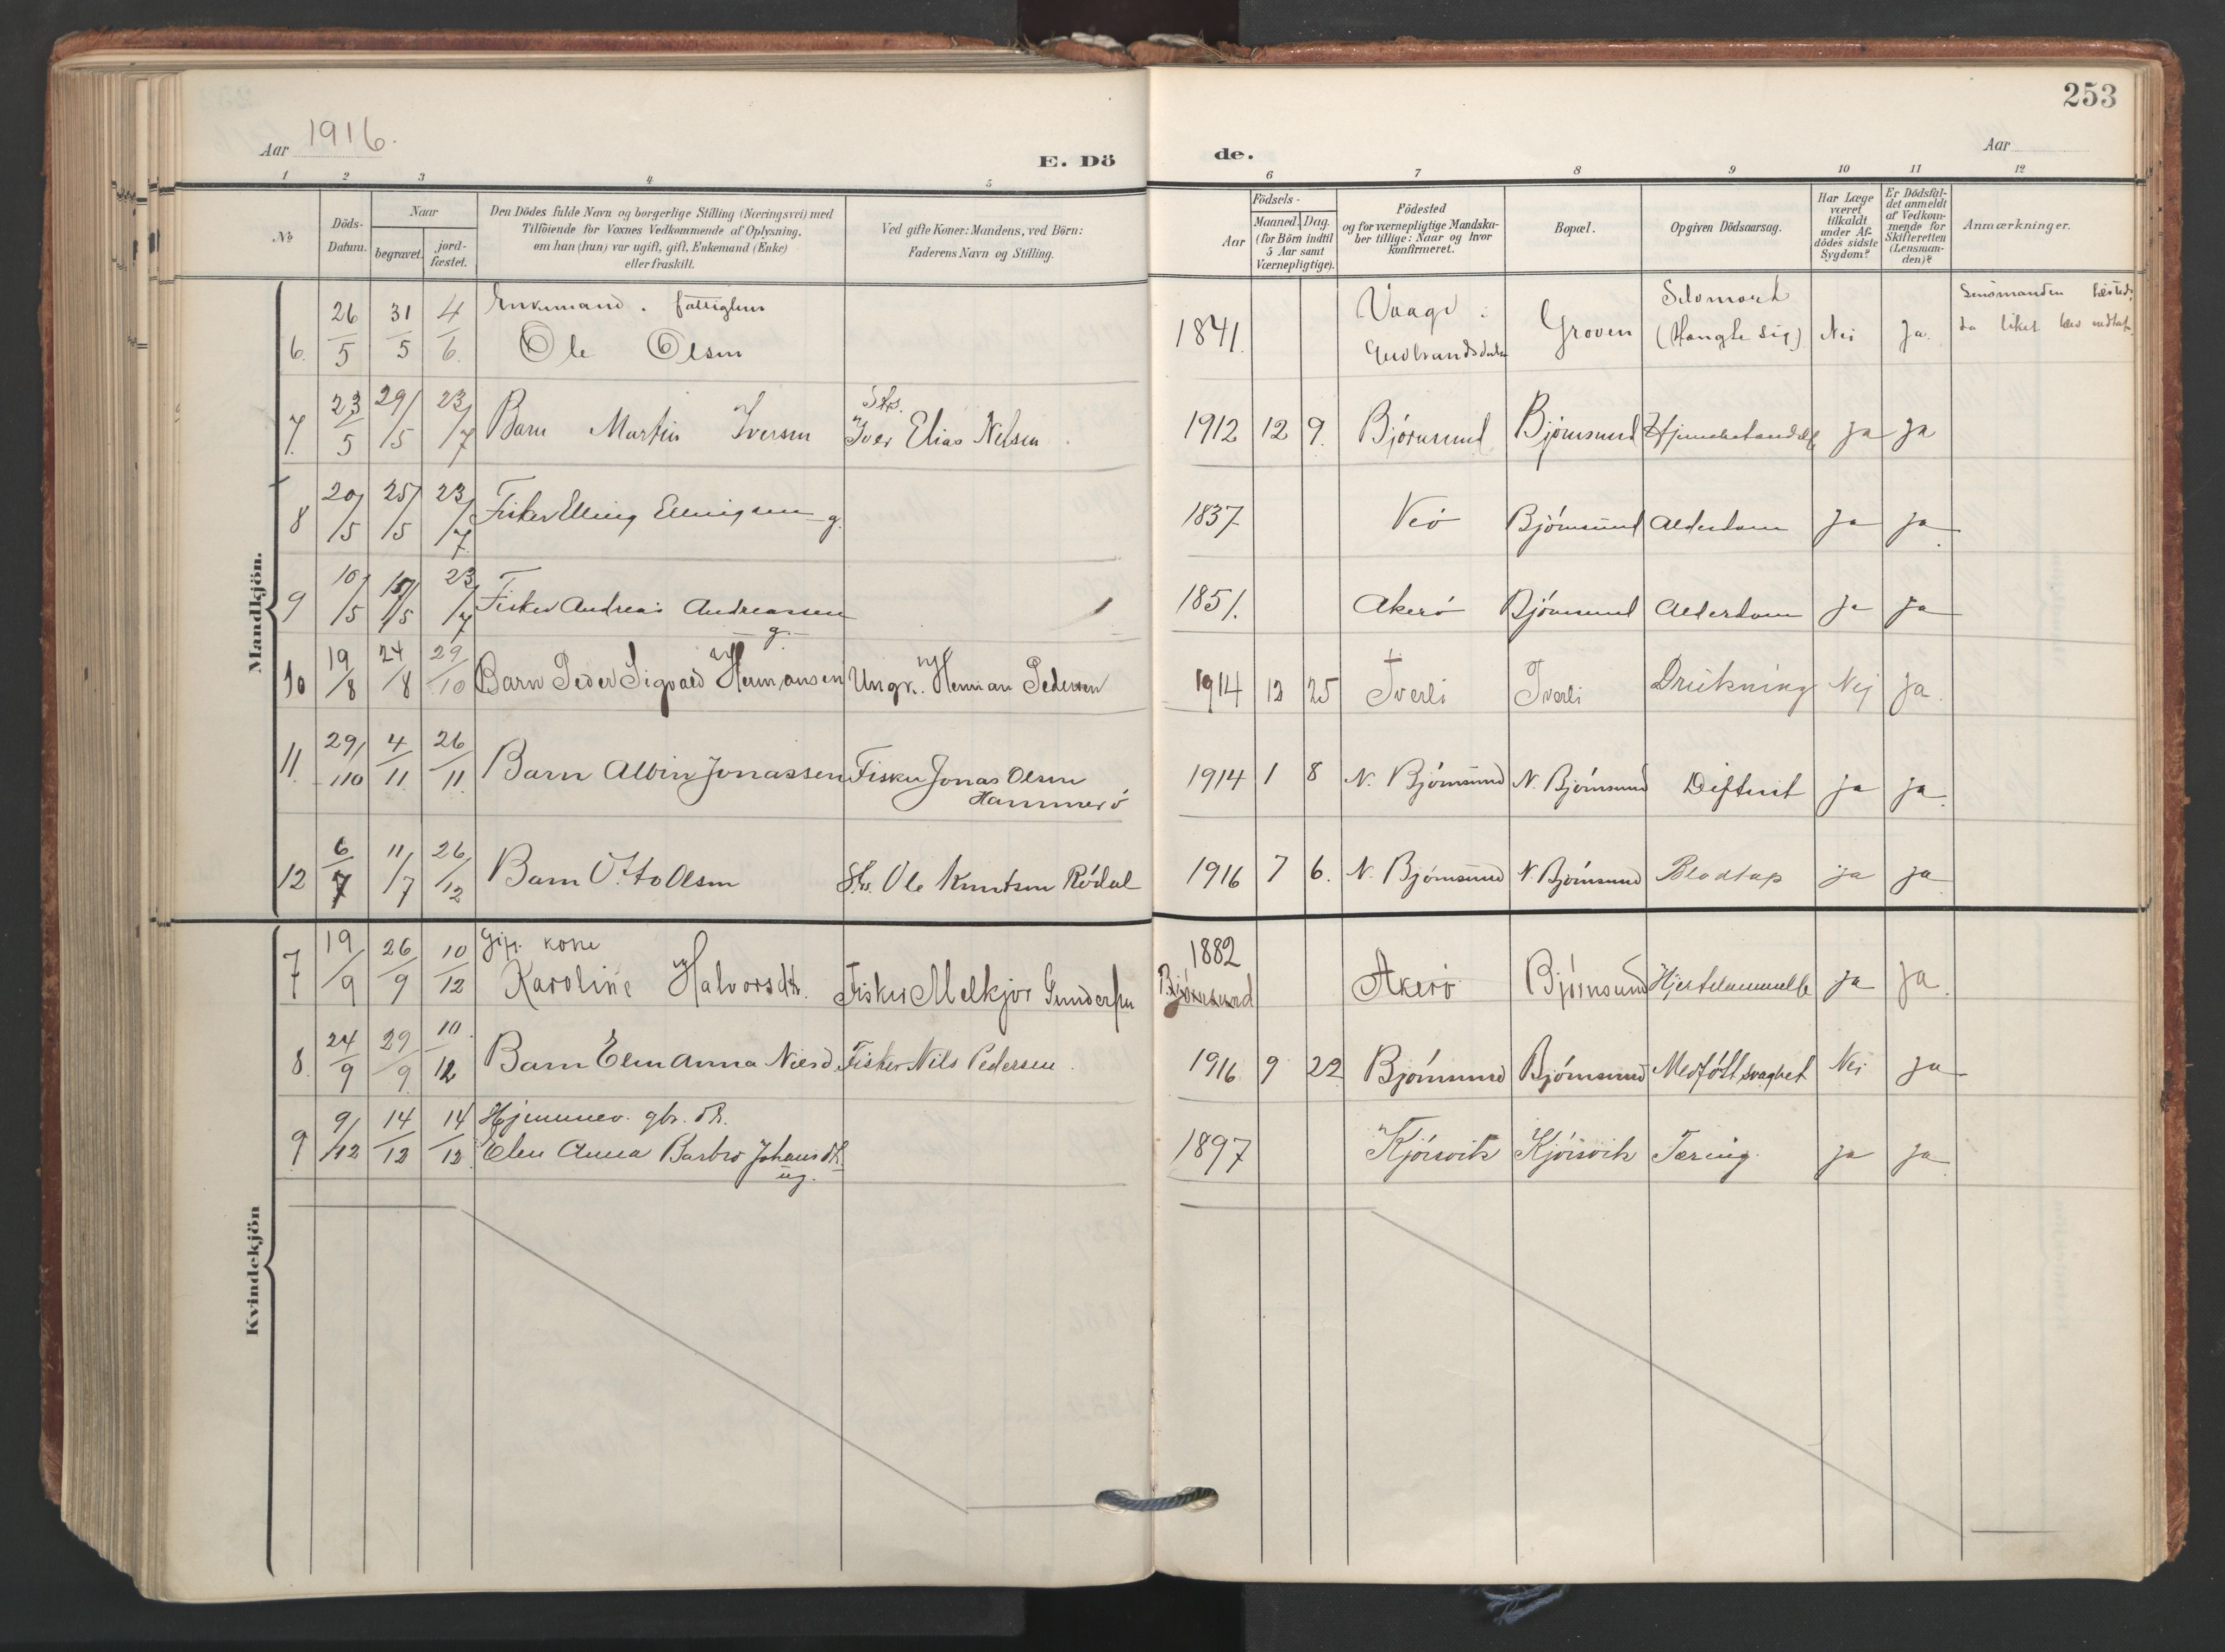 253
Aar 1916.
E. Dö de.
Aar
1 2 3 4 5 6 7 8 9 10 11 12
No
Döds-Datum.
Naar
begravet.
jord-fæstet.
Den Dödes fulde Navn og borgerlige Stilling (Næringsvei) med
Tilföiende for Voxnes Vedkommende af Oplysning,
om han (hun) var ugift, gift, Enkemand (Enke)
eller fraskilt.
Ved gifte Koner: Mandens, ved Börn:
Faderens Navn og Stilling.
Födsels-
Aar
Maaned. Dag.
(for Börn indtil
5 Aar samt
Værnepligtige).
Födested
og for værnepligtige Mandska-
ber tillige: Naar og hvor
konfirmeret.
Bopæl.
Opgiven Dödsaarsag.
Har Læge
været
tilkaldt
under Af-
dödes sidste
Sygdom?
Er Dödsfal-
det anmeldt
af Vedkom-
mende for
Skifteretten
(Lensman-
den)?
Anmærkninger.
Mandkjön.
6. 26/5 31/5 4/6. Enkemand. fattiglem
Ole Olsen 1841. Vaage i
Gudbrandsdalen Groven Selvmord
(Hængte sig) Nei Ja. Lensmanden
da liket blev
7. 23/5 29/5 23/7 Barn Martin Iversen Iver Elias Nilsen. 1912 12 9. Björnsund Björnsund ja ja
8 20/5 25/5 23/7 Fisker Elling Ellingsen g. 1837 Veö Björnsund Alderdom ja ja.
9 10/5 15/5 23/7 Fisker Andreas Andreassen
g. 1851. Akerö Björnsund Alderdom ja ja
10 19/8 24/8 29/10 Barn Peder Sigvald Hermansen Ungk. Herman Pedersen 1914 12 25 Tverli Tverli Drukning Nej ja.
11. 29/10 4/11 26/11. Barn Albin Jonassen Fisker Jonas Olsen
Hammerö 1914 1 8 N. Björnsund N. Björnsund Diftirit ja ja.
12 6/7 11/7 26/12 Barn Otto Olsen Ole Knutsen Rödal 1916 7 6. N. Björnsund N. Björnsund Blodtap ja ja
Kvindekjön
7 19/9 26/9 10/12 Gift kone
Karoline Halvorsdtr. Fisker Melkjor Gundersen 1882
Björnsund Akerö Björnsund Hjertelammelse ja ja.
8. 24/9 29/9 10/12 Barn Elen Anna Nilsd. Fisker Nils Pedersen. 1916 9 22 Björnsund Björnsund Medfött svaghet Nei ja
9 9/12 14/12 14/12 Hjemmev. gbr. dtr.
Elen Anna Barbro Johansdtr.
ug. 1897 Kjörsvik Kjörsvik Tæring. ja ja